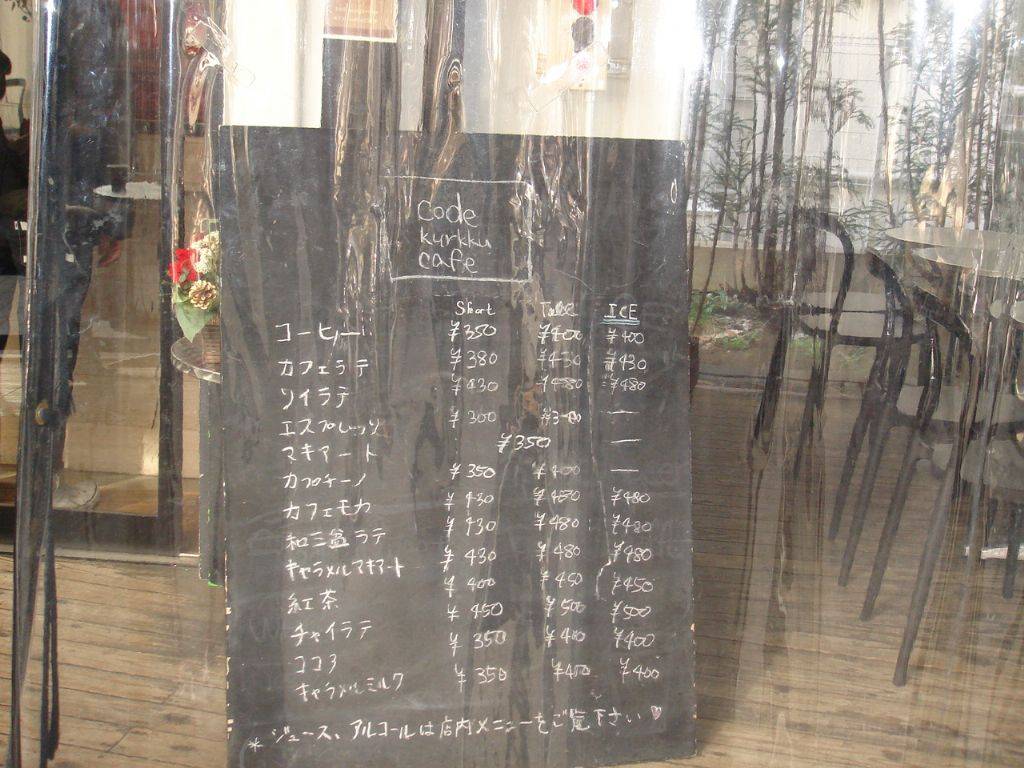 code
kurkku
cafe
Short Tall ICE
コーヒー ¥350 ¥400 ¥400
カフェラテ ¥380 ¥430 ¥430
ソイラテ ¥430 ¥480 ¥480
エスプレッソ ¥300 —
マキアート ¥350 —
カプチーノ ¥350 ¥400 —
カフェモカ ¥430 ¥480 ¥480
和三盆ラテ ¥430 ¥480 ¥480
キャラメルマキアート ¥430 ¥480 ¥480
紅茶 ¥400 ¥450 ¥450
チャイラテ ¥450 ¥500 ¥500
ココア ¥350 ¥400 ¥400
キャラメルミルク ¥350 ¥400 ¥400
* ジュース、アルコールは店内メニューをご覧下さい♡